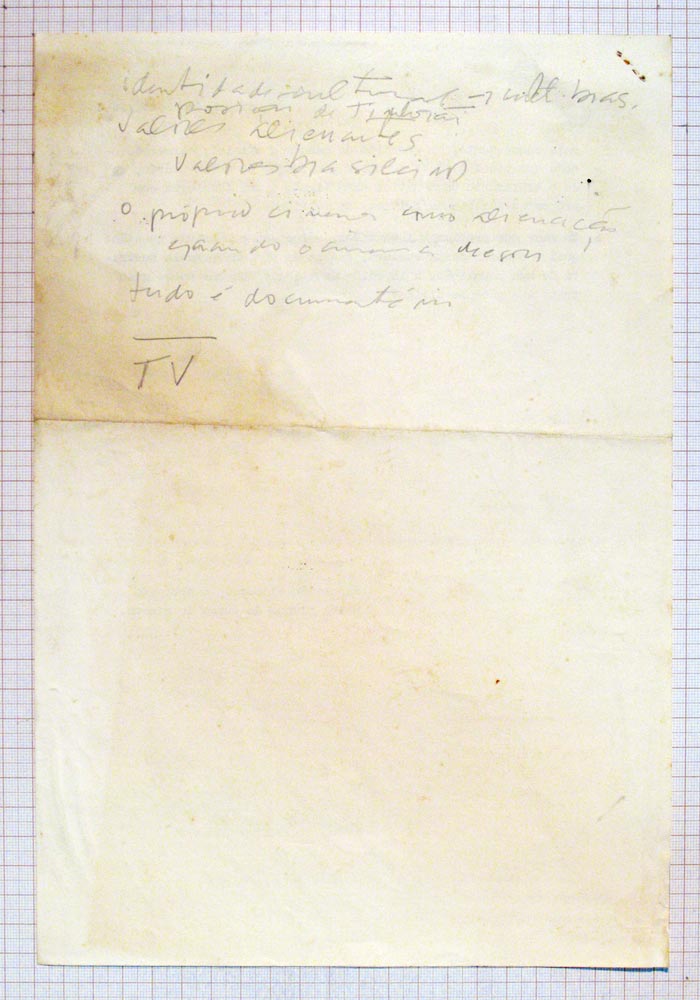 identidade cultural → cult. bras.
de
valores alienantes
valores brasileiros
o próprio cinema como alienação
quando o cinema
tudo é documentário
TV